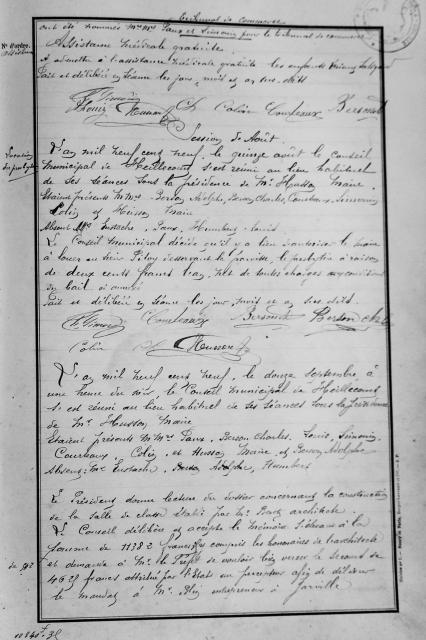 Tribunal de commerce
ont été nommés Mr Mrs Paux et Simonin pour le tribunal de commerce
N° d'ordre
Assistance médicale gratuite
à l'assistance médicale gratuite les enfants
Fait et délibéré en séance les jour, mois et an sus dits
Simonin
Louis Husson Ch Colin Courteaux Berson
Session de Août
L'an mil neuf cent neuf, le quinze août le Conseil
municipal de Heillecourt s'est réuni au lieu habituel
de ses séances sous la présidence de Mr Husson Maire.
Etaient présents M Mrs Berson Adolphe, Berson Charles, Courteaux, Simonin
Colin et Husson Maire
Absents Mrs Eustache, Paux, Humbert, Louis
Location
du presbytère
Le Conseil municipal décide qu'il y a lieu d'autoriser le maire
à louer au sieur desservant de la paroisse, le presbytère à raison
de deux cents francs l'an, net de toutes charges aux conditions
du bail ci annexé
Fait et délibéré en séance les jour, mois et an sus dits.
Simonin Courteaux Berson Berson Ch
Colin Husson
L'an mil neuf cent neuf, le douze septembre à
une heure du soir, le Conseil municipal de Heillecourt
s'est réuni au lieu habituel de ses séances sous la présidence
de Mr Husson, Maire
Etaient présents M Mrs Paux, Berson Charles, Louis, Simonin,
Courteaux Colin, et Husson Maire, et Berson Adolphe
Absents: Mr Eustache, Humbert
Le Président donne lecture du dossier concernant la construction
de la salle de classe établi par Mr architecte
Le Conseil délibère et accepte le mémoire s'élevant à la
somme de 11382 francs, y compris les honoraires de l'architecte
et demande à Mr le Préfet de vouloir bien verser le second de
4628 francs attribué par l'Etat au percepteur afin de délivrer
le mandat à Mr entrepreneur à Jarville